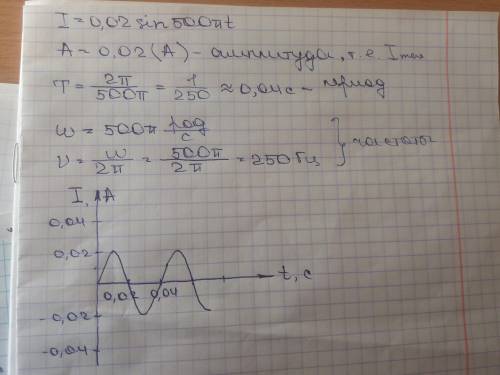 I = 0,02 sin 500πt
A = 0,02 (A) - амплитуда, т.е. Imax
T = 2π/500π = 1/250 ≈ 0,04 с - период
ω = 500π рад/с
ν = ω/2π = 500π/2π = 250 Гц } частоты
I, A
0,04
0,02
0,02 0,04 t, c
-0,02
-0,04